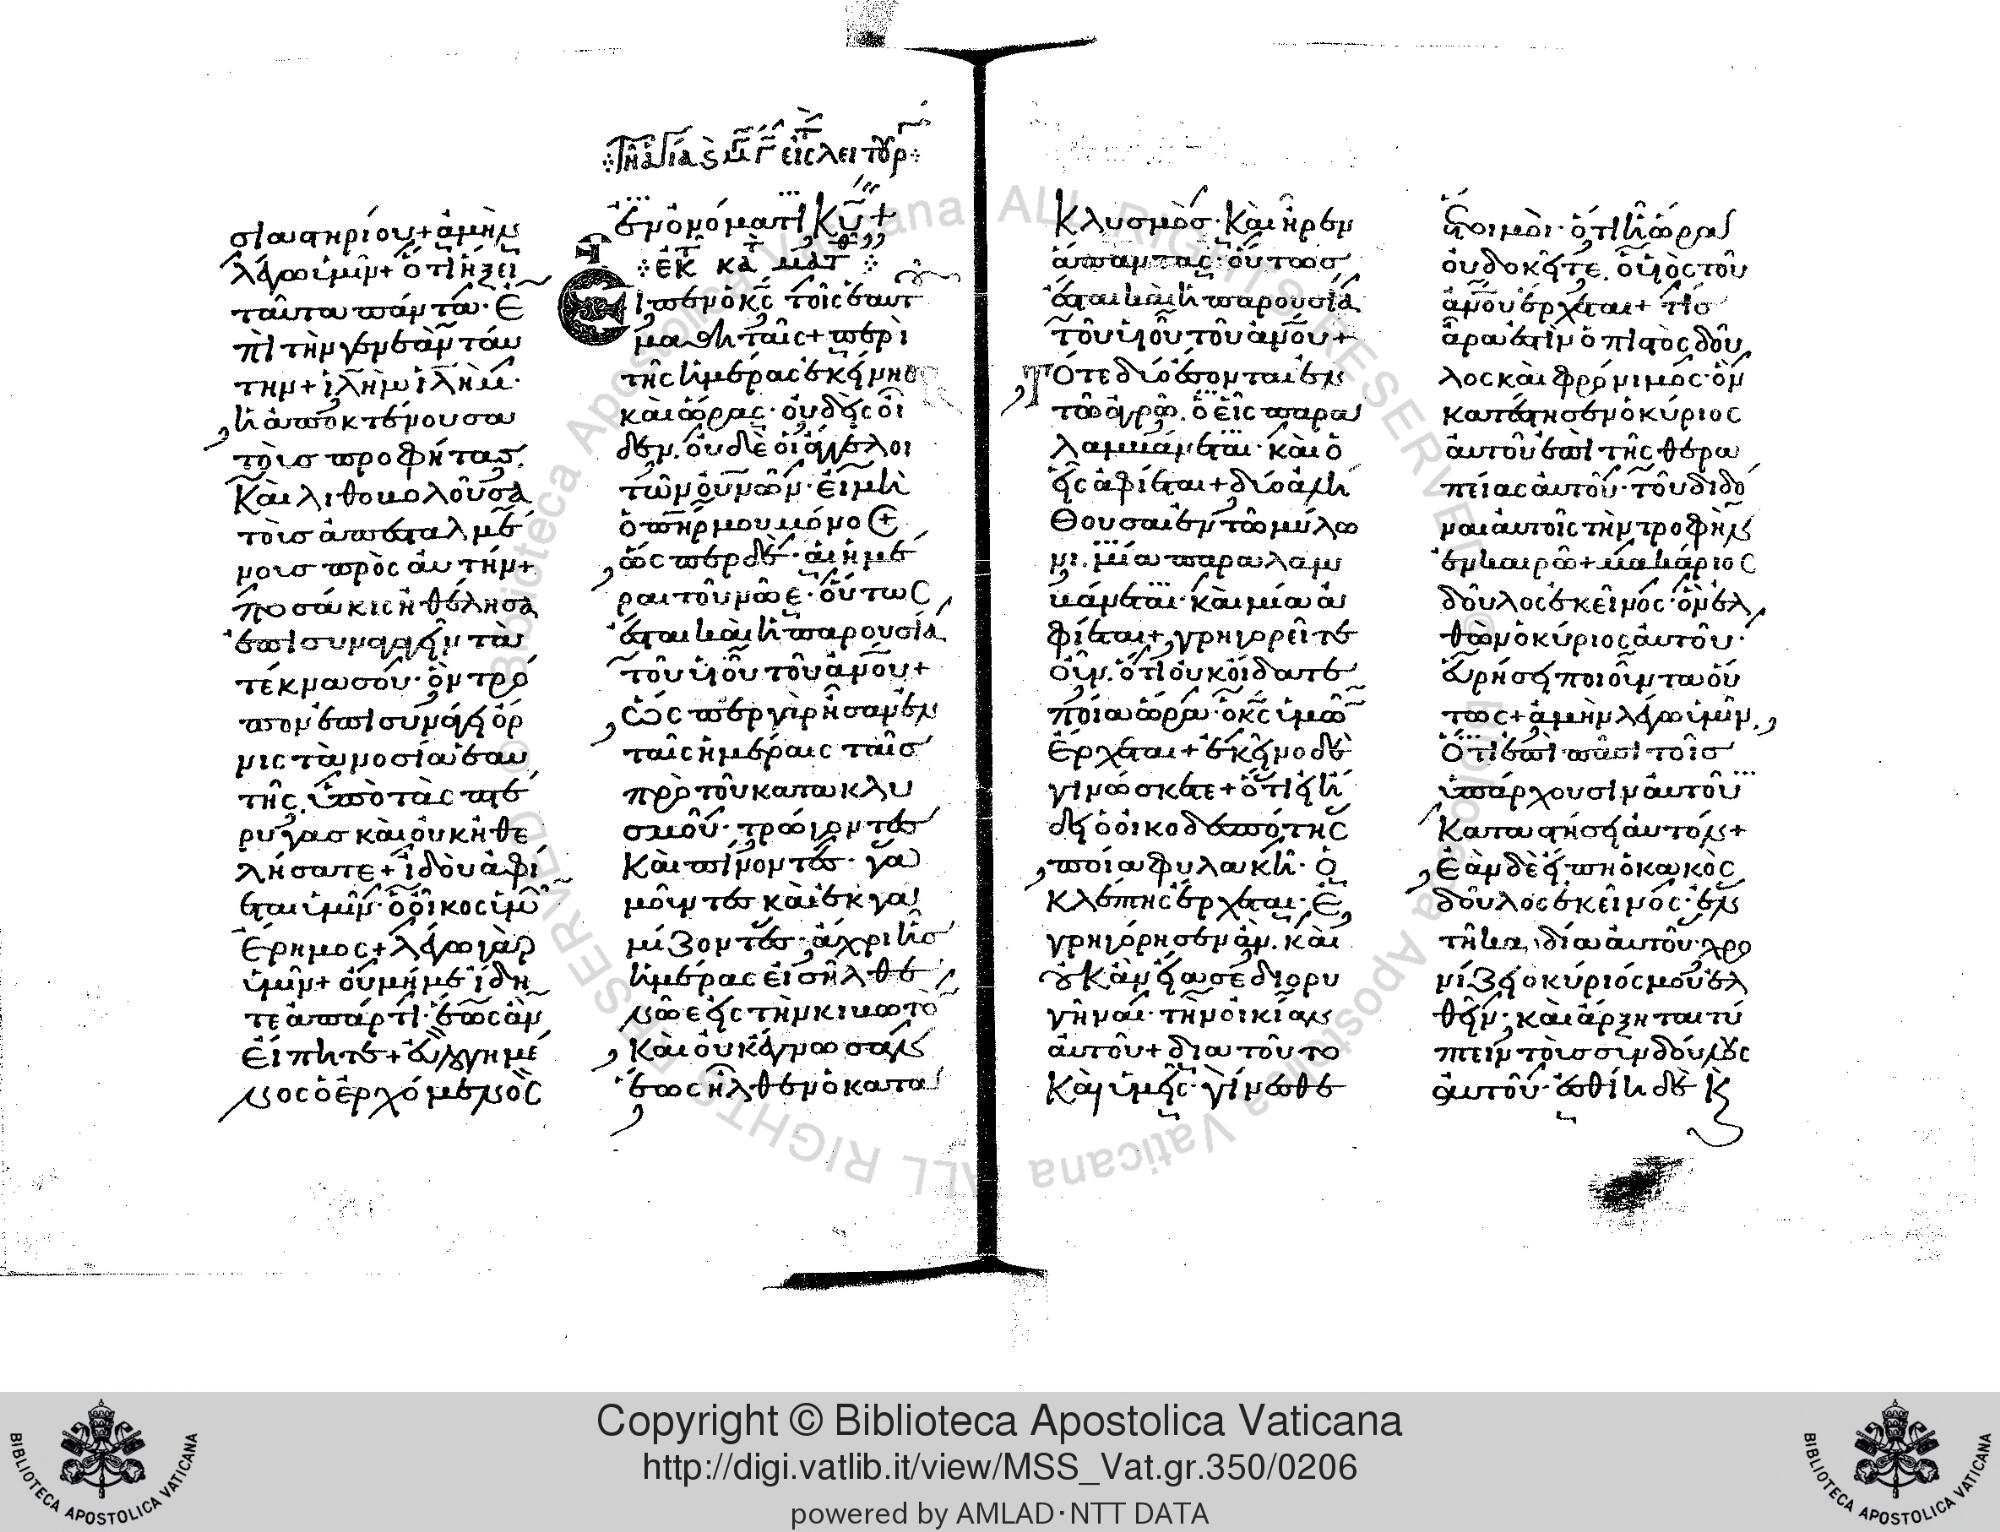 σιαστηρίου + ἀμὴν
λέγω ὑμῖν + ὅτι ἥξει
ταῦτα πάντα · ἐ
πὶ τὴν γενεὰν ταύ
την + ἱλὴμ ἱλὴμ ·
ἡ ἀποκτένουσα
τοὺς προφήτας.
Καὶ λιθοβολοῦσα
τοὺς ἀπεσταλμέ
νους πρὸς αὐτήν +
ποσάκις ἠθέλησα
ἐπισυναγαγεῖν τὰ
τέκνα σου · ὃν τρό
πον ἐπισυνάγει ὄρ
νις τὰ νοσία ἑαυ
τῆς. ὑπὸ τὰς πτέ
ρυγας καὶ οὐκ ἠθε
λήσατε + ἰδοὺ ἀφί
εται ὑμῖν · ὁ οἶκος ὑμῶ
ἔρημος + λέγω γὰρ
ὑμῖν + οὐ μή με ἴδη
τε ἀπάρτι · ἕως ἂν
εἴπητε + εὐλογημέ
νος ὁ ἐρχόμενος
ἐν ὀνόματι κυ +
Τῆ ἁγία β εἰς λειτουρ
ἐκ κατ ματθ
Εἶπεν ὁ κς τοῖς ἑαυτ
μαθηταῖς + περὶ
τῆς ἡμέρας ἐκείνης
καὶ ὥρας · οὐδεὶς οἶ
δεν. οὐδὲ οἱ ἄγγελοι
τῶν οὐνῶν · εἰ μὴ
ὁ πηρ μου μόνος
ὥσπερ δὲ · αἱ ἡμέ
ραι τοῦ νῶε · οὕτως
ἔσται καὶ ἡ παρουσία
τοῦ υἱοῦ τοῦ ἀνου +
ὥσπερ γὰρ ἦσαν ἐν
ταῖς ἡμέραις ταῖς
πρὸ τοῦ κατακλυ
σμοῦ · τρώγοντες
Καὶ πίνοντες · γα
μοῦντες καὶ ἐκγα
μίζοντες · ἄχρι ἧς
ἡμέρας εἰσῆλθε
νῶε εἰς τὴν κιβωτὸ
Καὶ οὐκ ἔγνωσαν
ἕως ἦλθεν ὁ κατα
Κλυσμὸς · Καὶ ἦρεν
ἅπαντας · οὕτως
ἔσται καὶ ἡ παρουσία
τοῦ υἱοῦ τοῦ ἀνου +
Τότε δύο ἔσονται ἐν
τῶ ἀγρῶ. ὁ εἷς παρα
λαμβάνεται · καὶ ὁ
εἷς ἀφίεται + δύο ἀλή
θουσαι ἐν τῶ μύλω
νι. μία παραλαμ
βάνεται · καὶ μία ἀ
φίεται + γρηγορεῖτε
οὖν. ὅτι οὐκ οἴδατε
ποία ὥρα · ὁ κς ὑμῶ
ἔρχεται + ἐκεῖνο δὲ
γινώσκετε + ὅτι εἰ ἤ
δει ὁ οἰκοδεσπότης
ποία φυλακῆ · ὁ
κλέπτης ἔρχεται · ἐ
γρηγόρησεν ἄν. καὶ
οὐκ ἂν εἴασε διορυ
γῆναι · τὴν οἰκίαν
αὐτοῦ + διατοῦτο
Καὶ ὑμεῖς · γίνεσθε
ἕτοιμοι · ὅτι ἧ ὥρα
οὐ δοκεῖτε. ὁ υἱὸς τοῦ
ἀνου ἔρχεται + τίς
ἄρα ἐστὶν ὁ πιστὸς δοῦ
λος καὶ φρόνιμος · ὃν
κατέστησεν ὁ κύριος
αὐτοῦ ἐπὶ τῆς θερα
πείας αὐτοῦ · τοῦ διδό
ναι αὐτοῖς τὴν τροφὴν
ἐν καιρῶ + μακάριος
δοῦλος ἐκεῖνος · ὃν ἐλ
θὼν ὁ κύριος αὐτοῦ ·
εὑρήσει ποιοῦντα οὕ
τως + ἀμὴν λέγω ὑμῖν.
ὅτι ἐπὶ πᾶσι τοῖς
ὑπάρχουσιν αὐτοῦ
Καταστήσει αὐτόν +
Ἐὰν δὲ εἴπη ὁ κακὸς
δοῦλος ἐκεῖνος · ἐν
τῆ καρδία αὐτοῦ · χρο
νίζει ὁ κύριός μου ἐλ
θεῖν · καὶ ἄρξηται τύ
πτειν τοὺς συνδούλους
αὐτοῦ · ἐσθίη δὲ κ
Copyright © Biblioteca Apostolica Vaticana
http://digi.vatlib.it/view/MSS_Vat.gr.350/0206
powered by AMLAD·NTT DATA
BIBLIOTECA APOSTOLICA VATICANA
BIBLIOTECA APOSTOLICA VATICANA